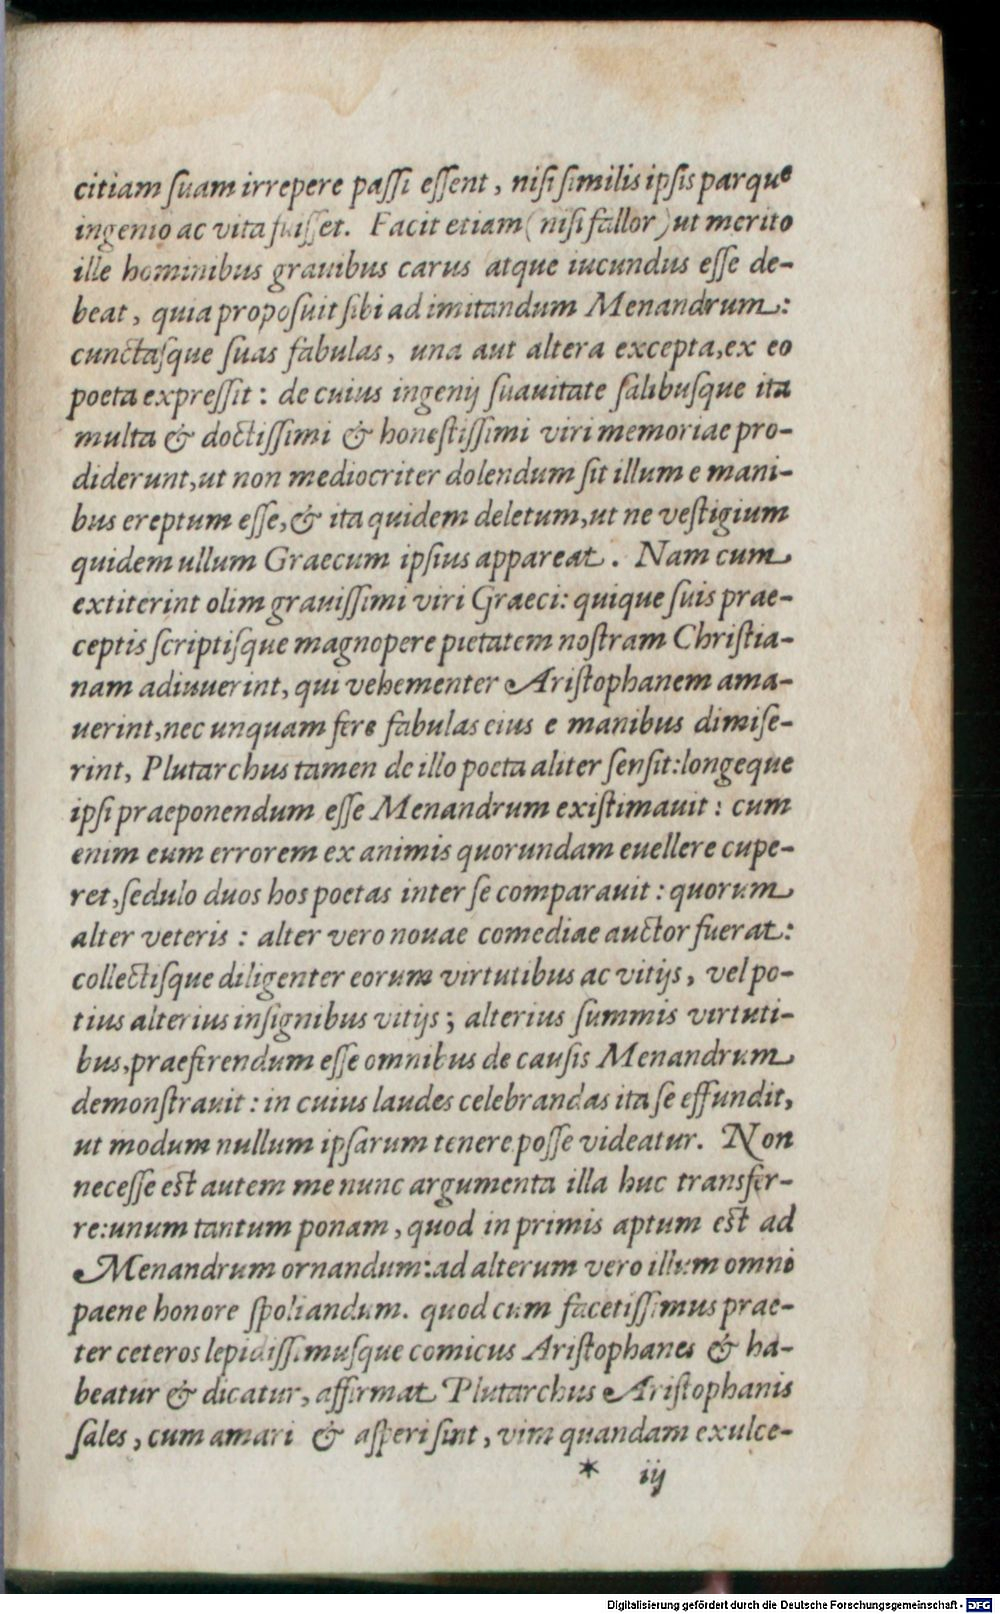 citiam suam irrepere passi essent, nisi similis ipsis parque
ingenio ac vita fuisset. Facit etiam (nisi fallor) ut merito
ille hominibus grauibus carus atque iucundus esse de-
beat, quia proposuit sibi ad imitandum Menandrum:
cunctasque suas fabulas, una aut altera excepta, ex eo
poeta expressit: de cuius ingenij suauitate salibusque ita
multa & doctissimi & honestissimi viri memoriae pro-
diderunt, ut non mediocriter dolendum sit illum e mani-
bus ereptum esse, & ita quidem deletum, ut ne vestigium
quidem ullum Graecum ipsius appareat. Nam cum
extiterint olim grauissimi viri Graeci: quique suis prae-
ceptis scriptisque magnopere pietatem nostram Christia-
nam adiuuerint, qui vehementer Aristophanem ama-
uerint, nec unquam fere fabulas eius e manibus dimise-
rint, Plutarchus tamen de illo poeta aliter sensit: longeque
ipsi praeponendum esse Menandrum existimauit: cum
enim eum errorem ex animis quorundam euellere cupe-
ret, sedulo duos hos poetas inter se comparauit: quorum
alter veteris: alter vero nouae comediae auctor fuerat:
collectisque diligenter eorum virtutibus ac vitijs, vel po-
tius alterius insignibus vitijs; alterius summis virtuti-
bus, praeferendum esse omnibus de causis Menandrum
demonstrauit: in cuius laudes celebrandas ita se effundit,
ut modum nullum ipsarum tenere posse videatur. Non
necesse est autem me nunc argumenta illa huc transfer-
re: unum tantum ponam, quod in primis aptum est ad
Menandrum ornandum: ad alterum vero illum omni
paene honore spoliandum. quod cum facetissimus prae-
ter ceteros lepidissimusque comicus Aristophanes & ha-
beatur & dicatur, affirmat Plutarchus Aristophanis
sales, cum amari & asperi sint, vim quandam exulce-
* iij
Digitalisierung gefördert durch die Deutsche Forschungsgemeinschaft - DFG